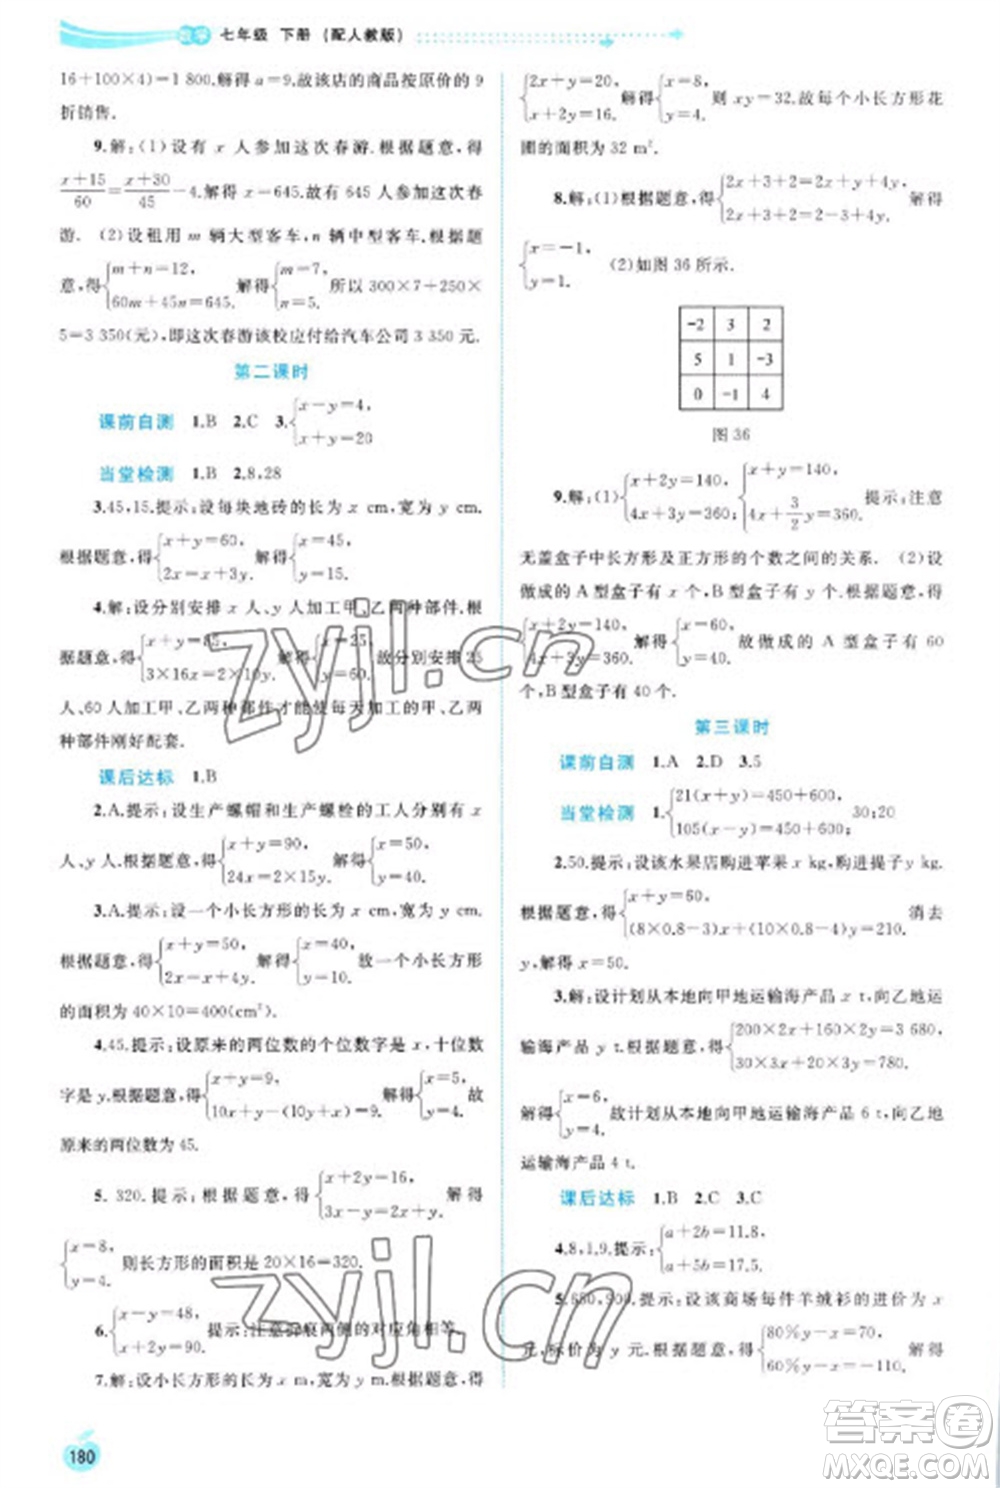 数学 七年级 下册 (配人教版)
16+100×4)=1 800.解得a=9.故该店的商品按原价的9
折销售.
9.解:(1)设有x人参加这次春游.根据题意,得
(x+15)/60=(x+30)/45-4.解得x=645.故有645人参加这次春
游. (2)设租用m辆大型客车,n辆中型客车.根据题
意,得{m+n=12, 60m+45n=645. 解得{m=7, n=5. 所以300×7+250×
5=3 350(元),即这次春游该校应付给汽车公司3 350元.
第二课时
课前自测 1.B 2.C 3.{x-y=4, x+y=20
当堂检测 1.B 2.8,28
3.45,15.提示:设每块地砖的长为x cm,宽为y cm.
根据题意,得{x+y=60, 2x=x+3y. 解得{x=45, y=15.
4.解:设分别安排x人、y人加工甲、乙两种部件.根
据题意,得{x+y=85, 3×16x=2×10y. 解得{x=25, y=60. 故分别安排25
人、60人加工甲、乙两种部件才能使每天加工的甲、乙两
种部件刚好配套.
课后达标 1.B
2.A.提示:设生产螺帽和生产螺栓的工人分别有x
人、y人.根据题意,得{x+y=90, 24x=2×15y. 解得{x=50, y=40.
3.A.提示:设一个小长方形的长为x cm,宽为y cm.
根据题意,得{x+y=50, 2x=x+4y. 解得{x=40, y=10. 故一个小长方形
的面积为40×10=400(cm²).
4.45.提示:设原来的两位数的个位数字是x,十位数
字是y.根据题意,得{x+y=9, 10x+y-(10y+x)=9. 解得{x=5, y=4. 故
原来的两位数为45.
5. 320.提示:根据题意,得{x+2y=16, 3x-y=20. 解得
{x=8, y=4. 则长方形的面积是20×16=320.
6.{x-y=48, x+2y=90. 提示:注意折痕两侧的对应角相等.
7.解:设小长方形的长为x m,宽为y m.根据题意,得
{2x+y=20, x+2y=16. 解得{x=8, y=4. 则xy=32.故每个小长方形花
圃的面积为32 m².
8.解:(1)根据题意,得{2x+3+2=2+y+4y, 2x+3+2=2-3+4y. 解得
{x=-1, y=1. (2)如图36所示.
-2 3 2
5 1 -3
0 -1 4
图36
9.解:(1){x+2y=140, 4x+3y=360; {x+y=140, 4x+3/2y=360. 提示:注意
无盖盒子中长方形及正方形的个数之间的关系. (2)设
做成的A型盒子有x个,B型盒子有y个.根据题意,得
{x+2y=140, 4x+3y=360. 解得{x=60, y=40. 故做成的A型盒子有60
个,B型盒子有40个.
第三课时
课前自测 1.A 2.D 3.5
当堂检测 1.{21(x+y)=450+600, 105(x-y)=450+600. 30;20
2.50.提示:设该水果店购进苹果x kg,购进提子y kg.
根据题意,得{x+y=60, (8×0.8-3)x+(10×0.8-4)y=210. 消去
y,解得x=50.
3.解:设计划从本地向甲地运输海产品x t,向乙地运
输海产品y t.根据题意,得{200×2x+160×2y=3 680, 30×3x+20×3y=780.
解得{x=6, y=4. 故计划从本地向甲地运输海产品6 t,向乙地
运输海产品4 t.
课后达标 1.B 2.C 3.C
4.8,1.9.提示:{a+2b=11.8, a+5b=17.5.
5.650,900.提示:设该商场每件羊绒衫的进价为x
元,标价为y元.根据题意,得{80%y-x=70, 60%y-x=-110. 解得
180
zyjl.cn
zyjl.cn
答案圈
MXQE.COM